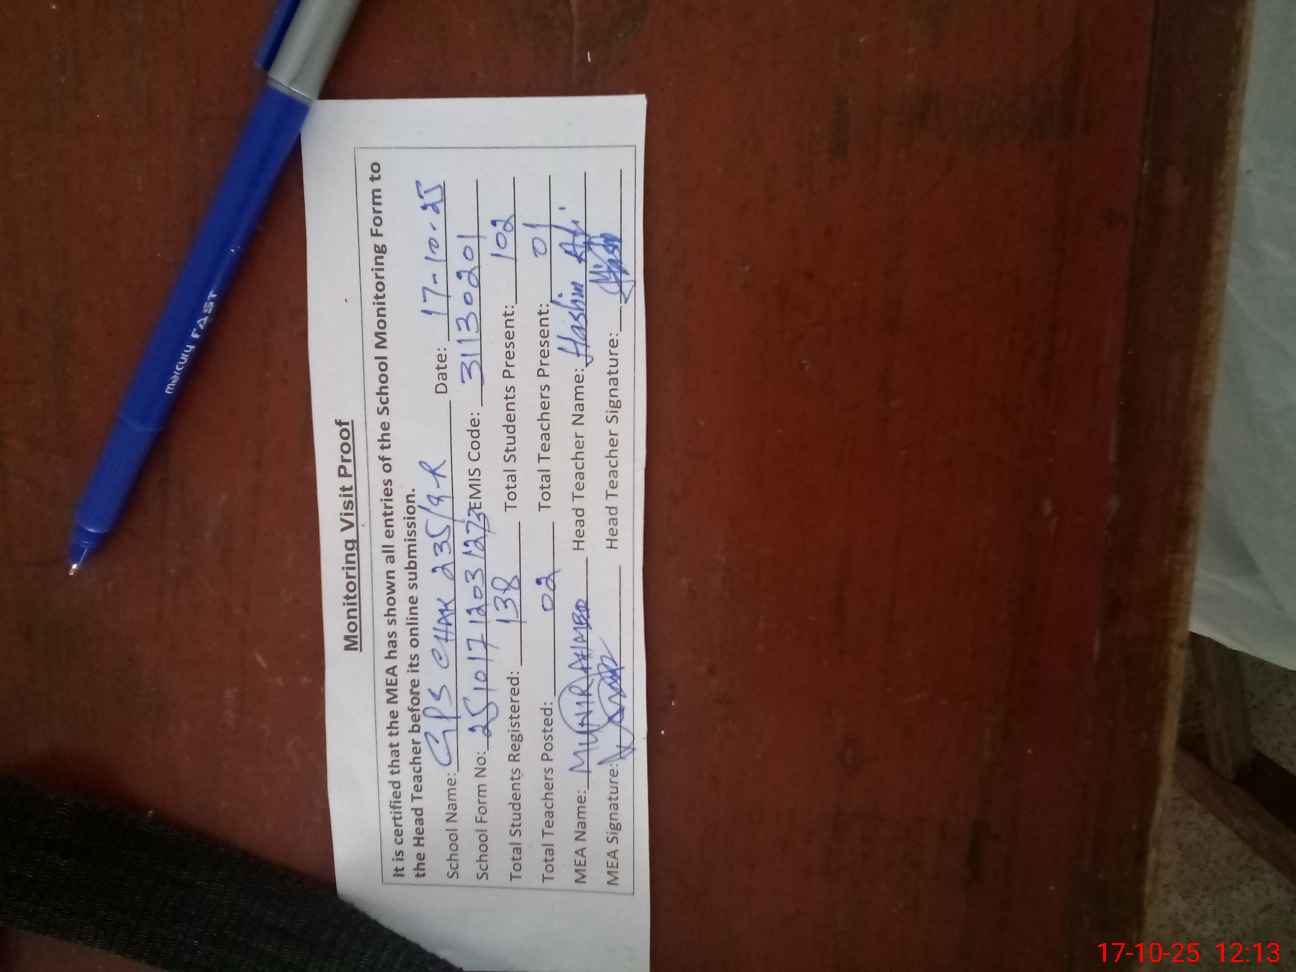 Monitoring Visit Proof
It is certified that the MEA has shown all entries of the School Monitoring Form to
the Head Teacher before its online submission.
School Name: GPS CHAK 235/9-R Date: 17-10-25
School Form No: 25101712031273 EMIS Code: 31130201
Total Students Registered: 138 Total Students Present: 102
Total Teachers Posted: 02 Total Teachers Present: 01
MEA Name: MUNIR AHMED Head Teacher Name: Hashim Ali
MEA Signature: Head Teacher Signature:
mercury FAST
17-10-25 12:13